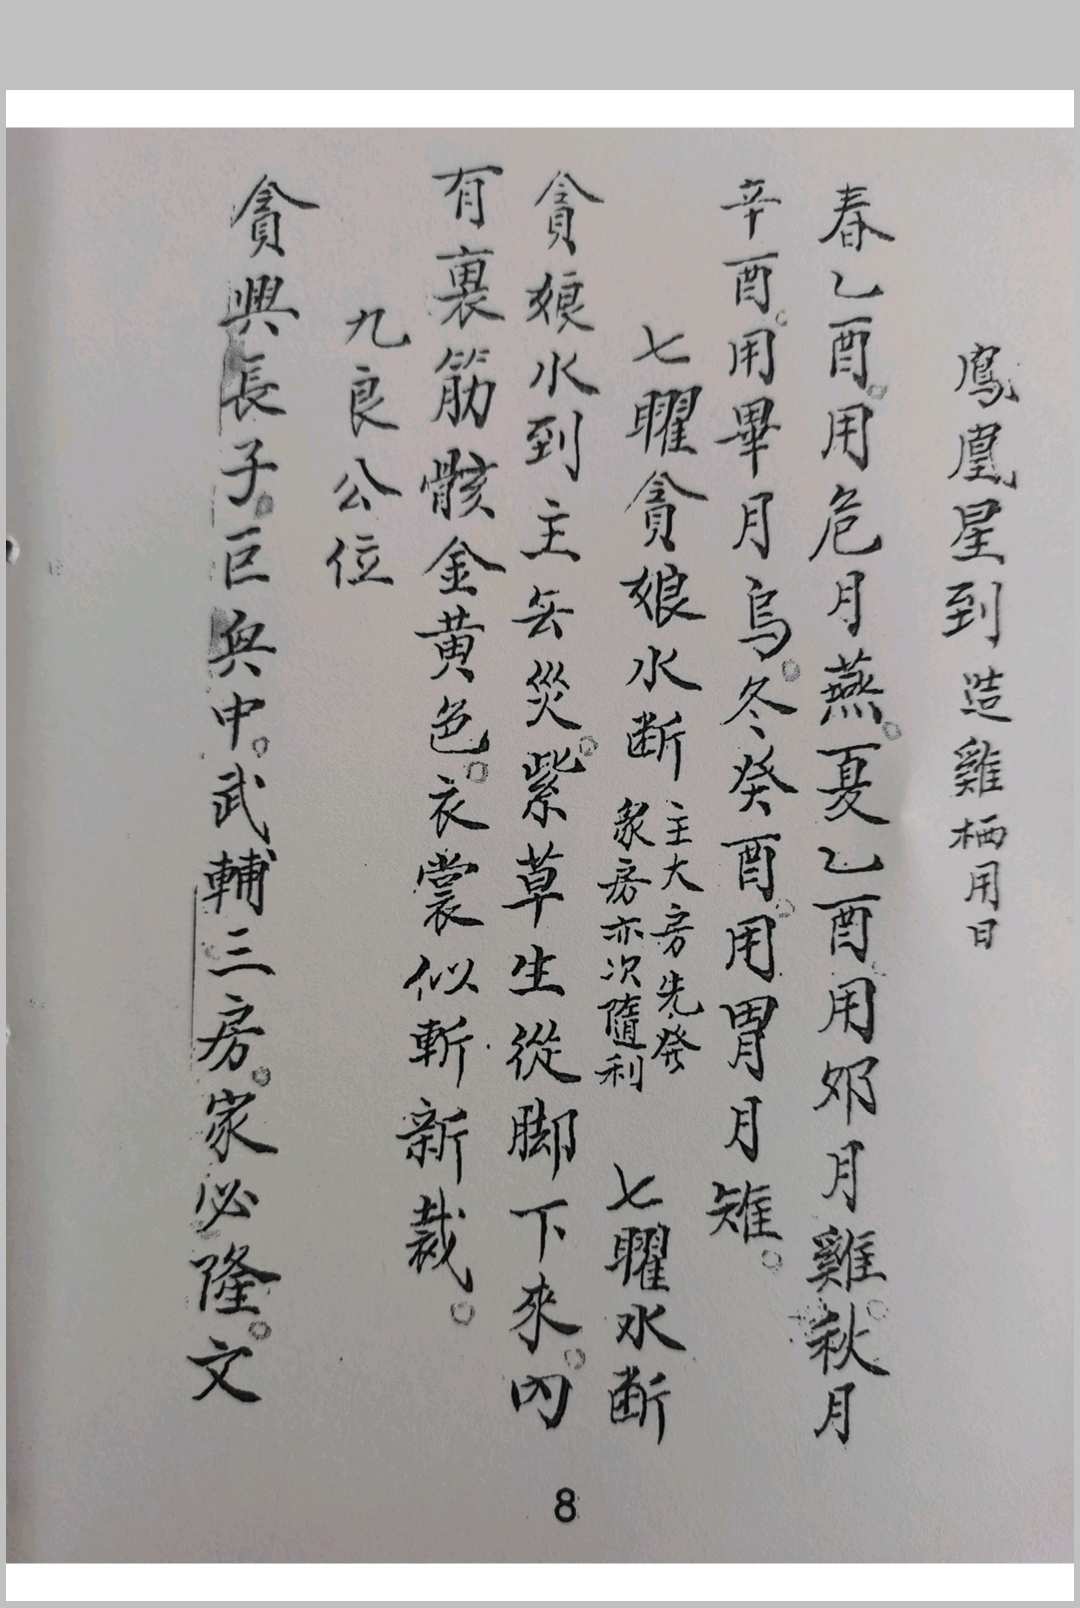 鳳凰星到 造雞栖用日
春乙酉。用危月燕。夏乙酉用昴月雞。秋月
辛酉。用畢月烏。冬癸酉。用胃月雉。
七曜貪娘水断 主大房先發 衆房亦次隨利 七曜水断
貪娘水到主無災。紫草生從脚下來。內
有裏筋骸金黃色。衣裳似斬新裁。
九良公位
貪興長子。巨與中。武輔三房。家必隆。文
8